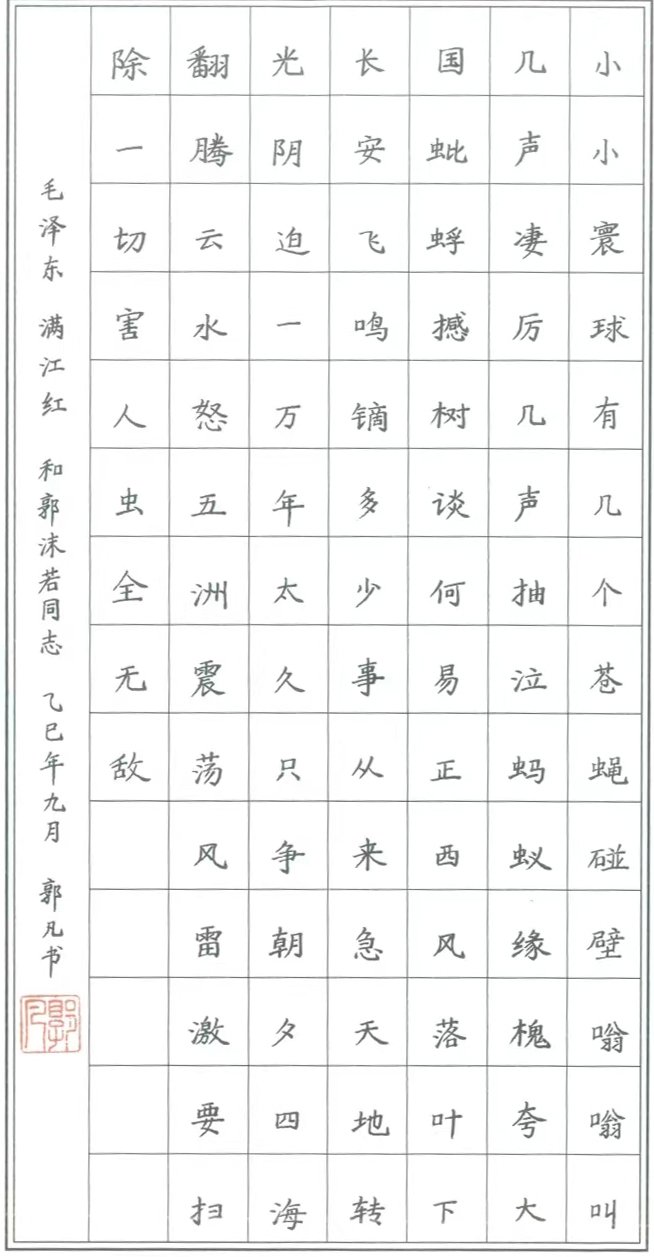 小小寰球有几个苍蝇碰壁嗡嗡叫
几声凄厉几声抽泣蚂蚁缘槐夸大
国蚍蜉撼树谈何易正西风落叶下
长安飞鸣镝多少事从来急天地转
光阴迫一万年太久只争朝夕四海
翻腾云水怒五洲震荡风雷激要扫
除一切害人虫全无敌
毛泽东 满江红 和郭沫若同志 乙巳年九月 郭凡书
郭凡